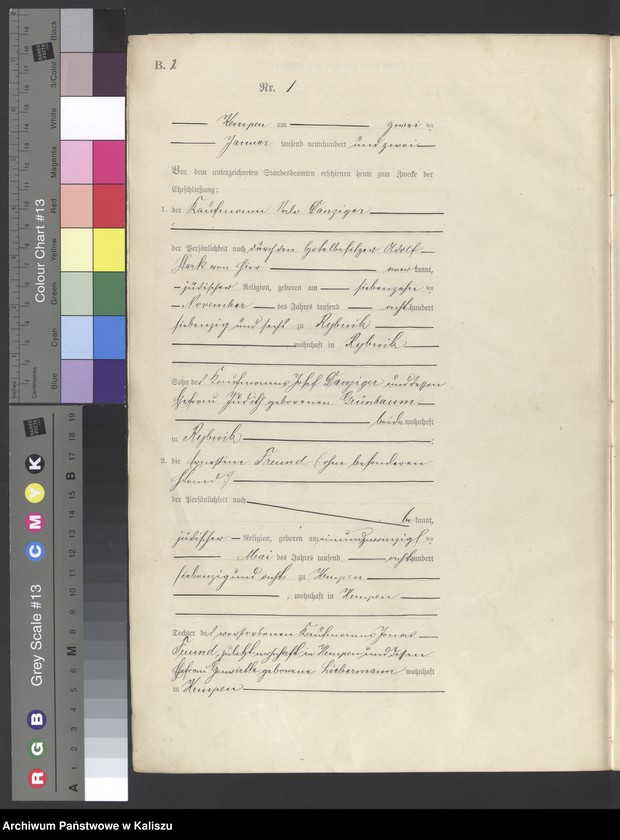 B. 2
Nr. 1
Kempen am zwei ten
Januar tausend neunhundert und zwei
Vor dem unterzeichneten Standesbeamten erschienen heute zum Zwecke der
Eheschließung:
1. der Kaufmann Salo Danziger
der Persönlichkeit nach durch den Hotelbesitzer Adolf
von hier kannt,
jüdischer Religion, geboren am siebenzehn ten
November des Jahres tausend acht hundert
siebenzig und sechs zu Rybnik
wohnhaft in Rybnik
Sohn des Kaufmanns Josef Danziger und dessen
Ehefrau Judith geborenen Grünbaum
beide wohnhaft
in Rybnik
2. die Ernestine Freund (ohne besonderen
Stand)
der Persönlichkeit nach
be kannt,
jüdischer Religion, geboren am einundzwanzigs ten
Mai des Jahres tausend acht hundert
siebenzig und acht zu Kempen
, wohnhaft in Kempen
Tochter des verstorbenen Kaufmanns Jonas
Freund, zuletzt wohnhaft in Kempen und dessen
Ehefrau Henriette geborene Liebermann wohnhaft
in Kempen
Colour Chart #13
Black
3/Color
White
Magenta
Red
Yellow
Green
Cyan
Blue
Centimetres
Grey Scale #13
R G B C M Y K
A 1 2 3 4 5 6 M 8 9 10 11 12 13 14 15 B 17 18 19
Archiwum Państwowe w Kaliszu